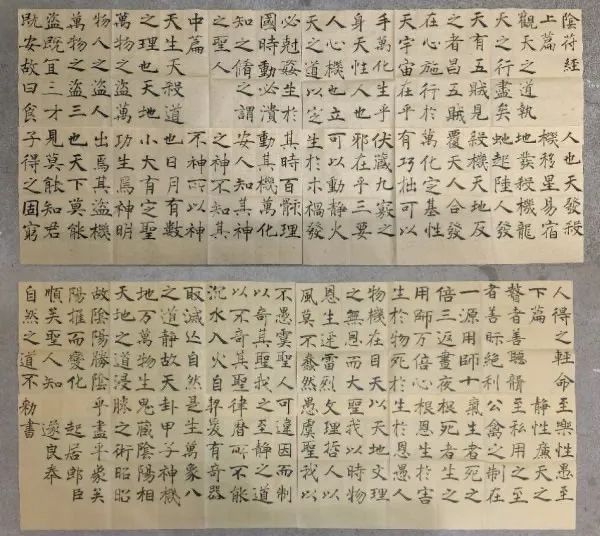 陰符經
上篇
觀天之道執
天之行盡矣
天有五賊見
之者昌五賊
在心施行於
天宇宙在乎
手萬化生乎
身天性人也
人心機也立
天之道以定
人也天發殺
機移星易宿
地發殺機龍
蛇起陸人發
殺機天地反
覆天人合發
萬化定基性
有巧拙可以
伏藏九竅之
邪在乎三要
可以動靜火
生於木禍發
必剋姦生於
國時動必潰
知之脩之謂
之聖人
中篇
天生天殺道
之理也天地
萬物之盜萬
物人之盜人
萬物之盜三
盜既宜三才
既安故曰食
其時百骸理
動其機萬化
安人知其神
之神不知其
不神所以神
也日月有數
小大有定聖
功生焉神明
出焉其盜機
也天下莫能
見莫能知君
子得之固窮
人得之輕命
下篇
瞽者善聽聾
者善眎絕利
一源用師十
倍三返晝夜
用師万倍心
生於物死於
物機在目天
之無恩而大
恩生迅雷烈
風莫不蠢然
至樂性愚至
靜性廉天之
至私用之至
公禽之制在
氣生者死之
根死者生之
根恩生於害
生於恩愚人
以天地文理
聖我以時物
文理哲人以
愚虞聖我以
不愚虞聖人
以奇其聖我
以不奇其聖
沉水入火自
取滅亡自然
之道靜故天
地万物生
天地之道浸
故陰陽勝陰
陽推而變化
順矣聖人知
自然之道不
可違因而制
之至靜之道
律曆所不能
契爰有奇器
是生萬象八
卦甲子神機
鬼藏陰陽相
勝之術昭昭
乎盡乎象矣
起居郎臣
遂良奉
勑書